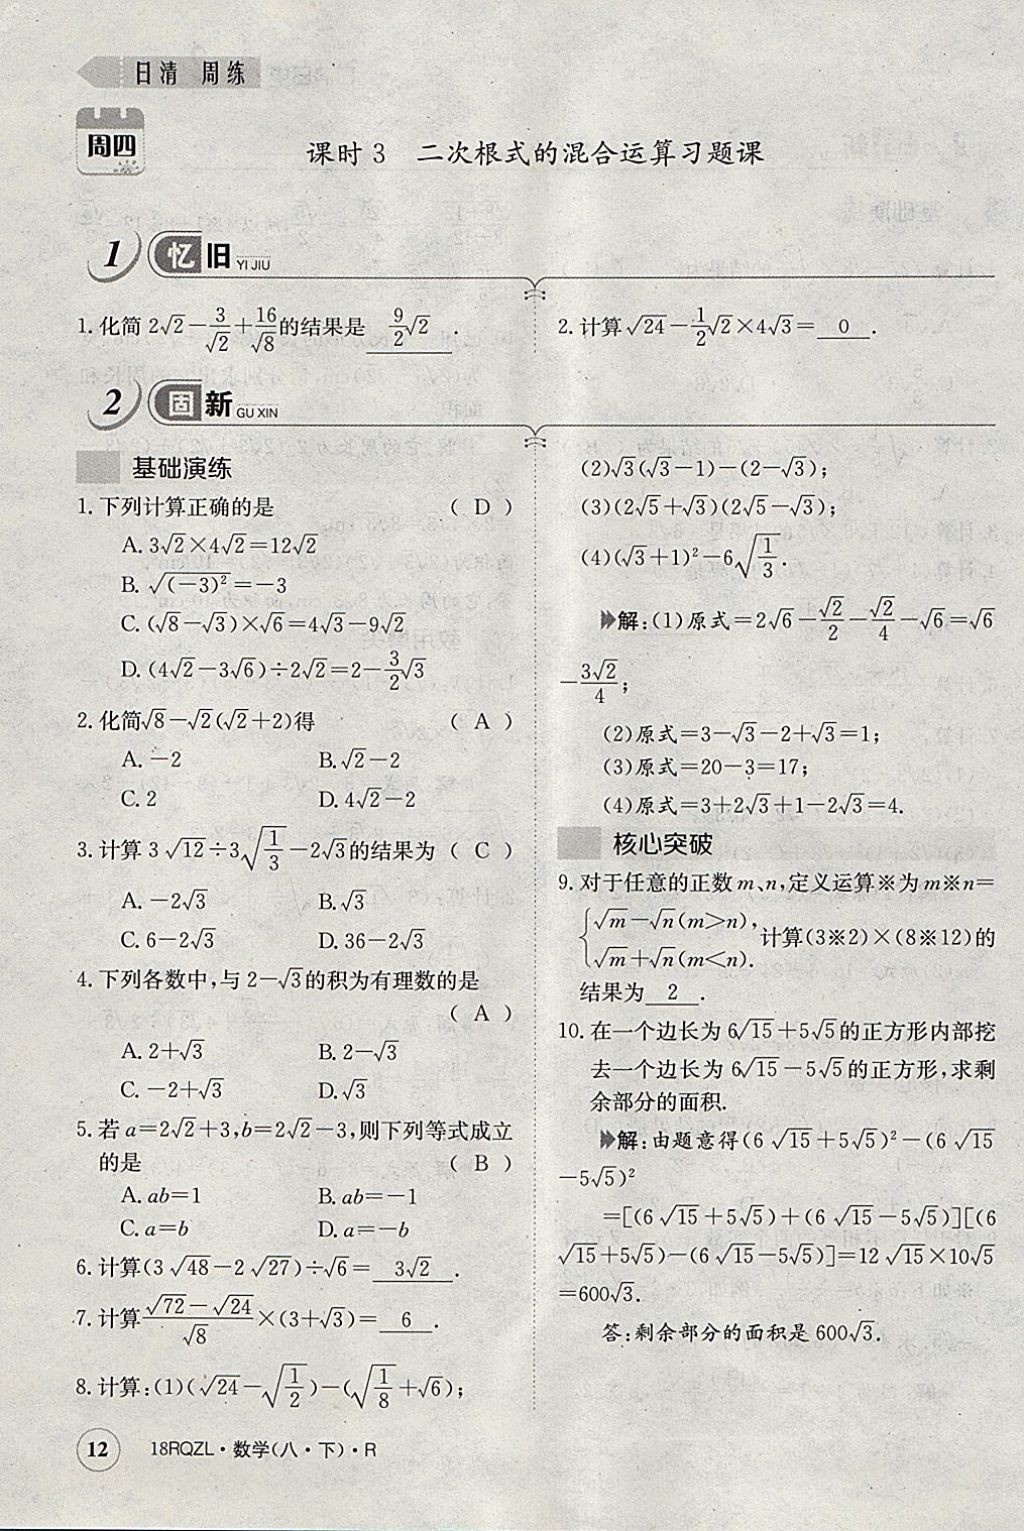 日清 周练
周四
课时3 二次根式的混合运算习题课
1 忆旧 YI JIU
1.化简2√2－3/√2＋16/√8的结果是 9/2√2 .
2.计算√24－1/2√2×4√3＝ 0 .
2 固新 GU XIN
基础演练
1.下列计算正确的是 ( D )
A.3√2×4√2＝12√2
B.√(－3)²＝－3
C.(√8－√3)×√6＝4√3－9√2
D.(4√2－3√6)÷2√2＝2－3/2√3
2.化简√8－√2(√2＋2)得 ( A )
A.－2 B.√2－2
C.2 D.4√2－2
3.计算3√12÷3√(1/3)－2√3的结果为 ( C )
A.－2√3 B.√3
C.6－2√3 D.36－2√3
4.下列各数中,与2－√3的积为有理数的是
( A )
A.2＋√3 B.2－√3
C.－2＋√3 D.√3
5.若a＝2√2＋3,b＝2√2－3,则下列等式成立
的是 ( B )
A.ab＝1 B.ab＝－1
C.a＝b D.a＝－b
6.计算(3√48－2√27)÷√6＝ 3√2 .
7.计算(√72－√24)/√8×(3＋√3)＝ 6 .
8.计算:(1)(√24－√(1/2))－(√(1/8)＋√6);
(2)√3(√3－1)－(2－√3);
(3)(2√5＋√3)(2√5－√3);
(4)(√3＋1)²－6√(1/3).
解:(1)原式＝2√6－√2/2－√2/4－√6＝√6
－3√2/4;
(2)原式＝3－√3－2＋√3＝1;
(3)原式＝20－3＝17;
(4)原式＝3＋2√3＋1－2√3＝4.
核心突破
9.对于任意的正数m、n,定义运算※为m※n＝
{√m－√n(m>n),
√m＋√n(m<n). 计算(3※2)×(8※12)的
结果为 2 .
10.在一个边长为6√15＋5√5的正方形内部挖
去一个边长为6√15－5√5的正方形,求剩
余部分的面积.
解:由题意得(6√15＋5√5)²－(6√15
－5√5)²
＝[(6√15＋5√5)＋(6√15－5√5)][(6
√15＋5√5)－(6√15－5√5)]＝12√15×10√5
＝600√3.
答:剩余部分的面积是600√3.
12 18RQZL·数学(八·下)·R